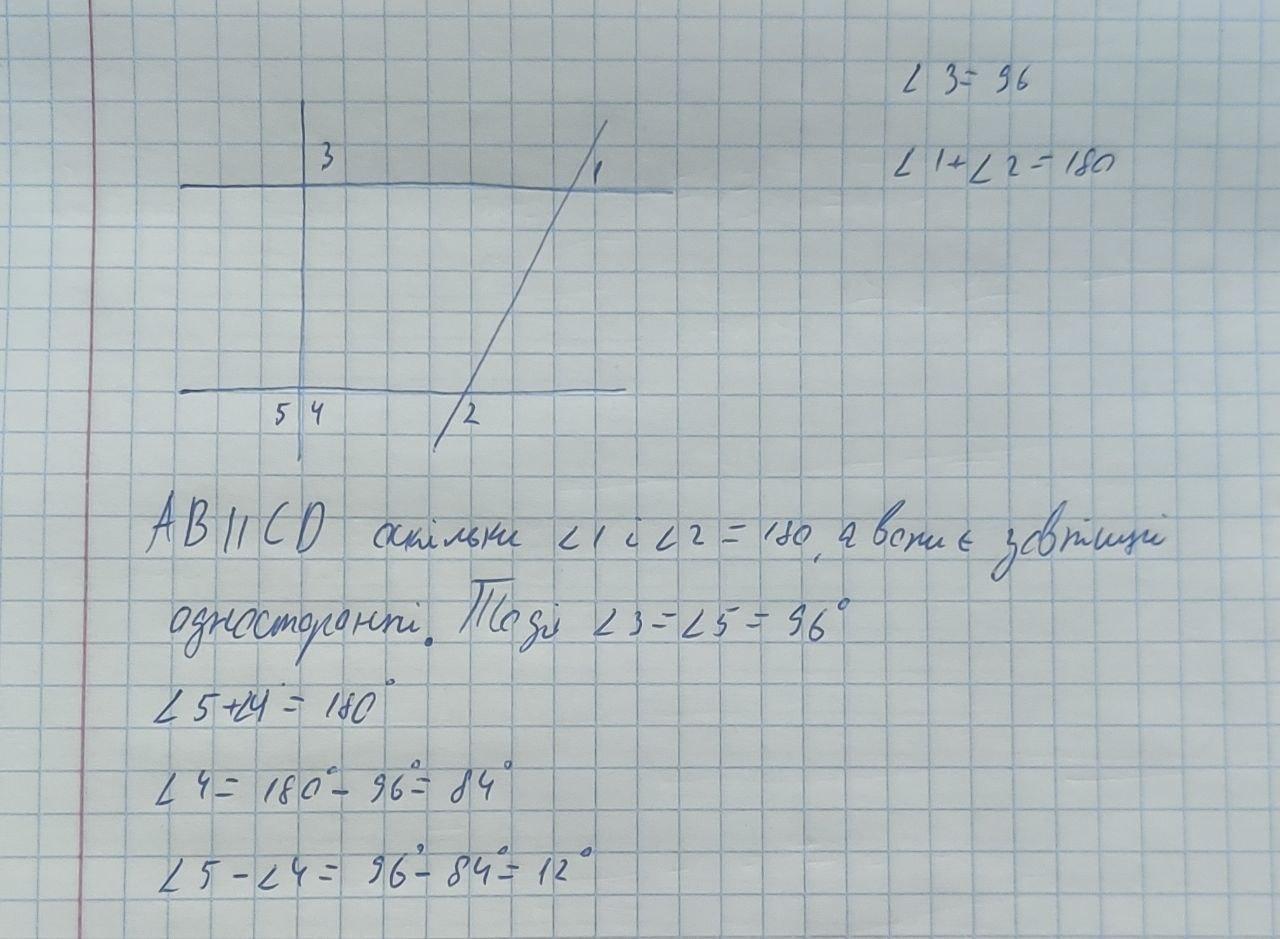 ∠3= 96
∠1+∠2=180
3
1
5 4
2
AB||CD оскільки ∠1 і ∠2=180, а вони є зовнішні
односторонні. Тоді ∠3=∠5=96°
∠5+∠4=180°
∠4= 180°- 96°= 84°
∠5-∠4= 96°- 84°= 12°